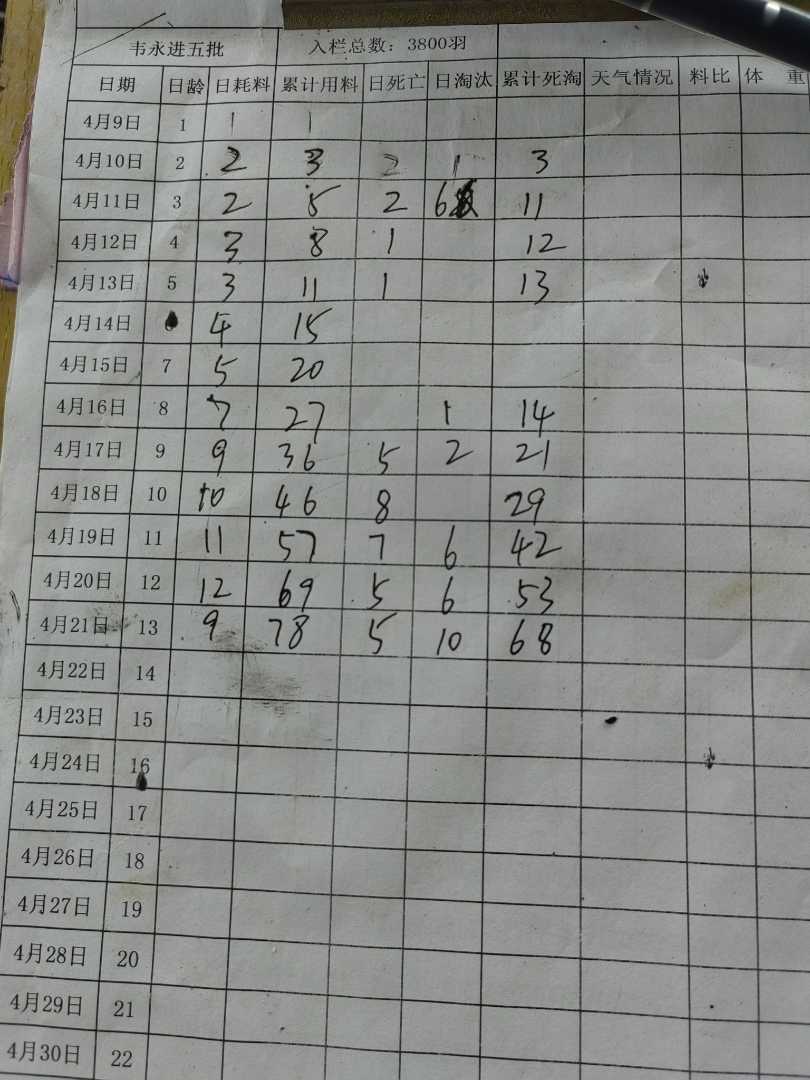 韦永进五批 入栏总数：3800羽
日期 日龄 日耗料 累计用料 日死亡 日淘汰 累计死淘 天气情况 料比 体 重
4月9日 1 1 1
4月10日 2 2 3 2 1 3
4月11日 3 2 5 2 6 11
4月12日 4 3 8 1 12
4月13日 5 3 11 1 13
4月14日 4 15
4月15日 7 5 20
4月16日 8 7 27 1 14
4月17日 9 9 36 5 2 21
4月18日 10 10 46 8 29
4月19日 11 11 57 7 6 42
4月20日 12 12 69 5 6 53
4月21日 13 9 78 5 10 68
4月22日 14
4月23日 15
4月24日 16
4月25日 17
4月26日 18
4月27日 19
4月28日 20
4月29日 21
4月30日 22